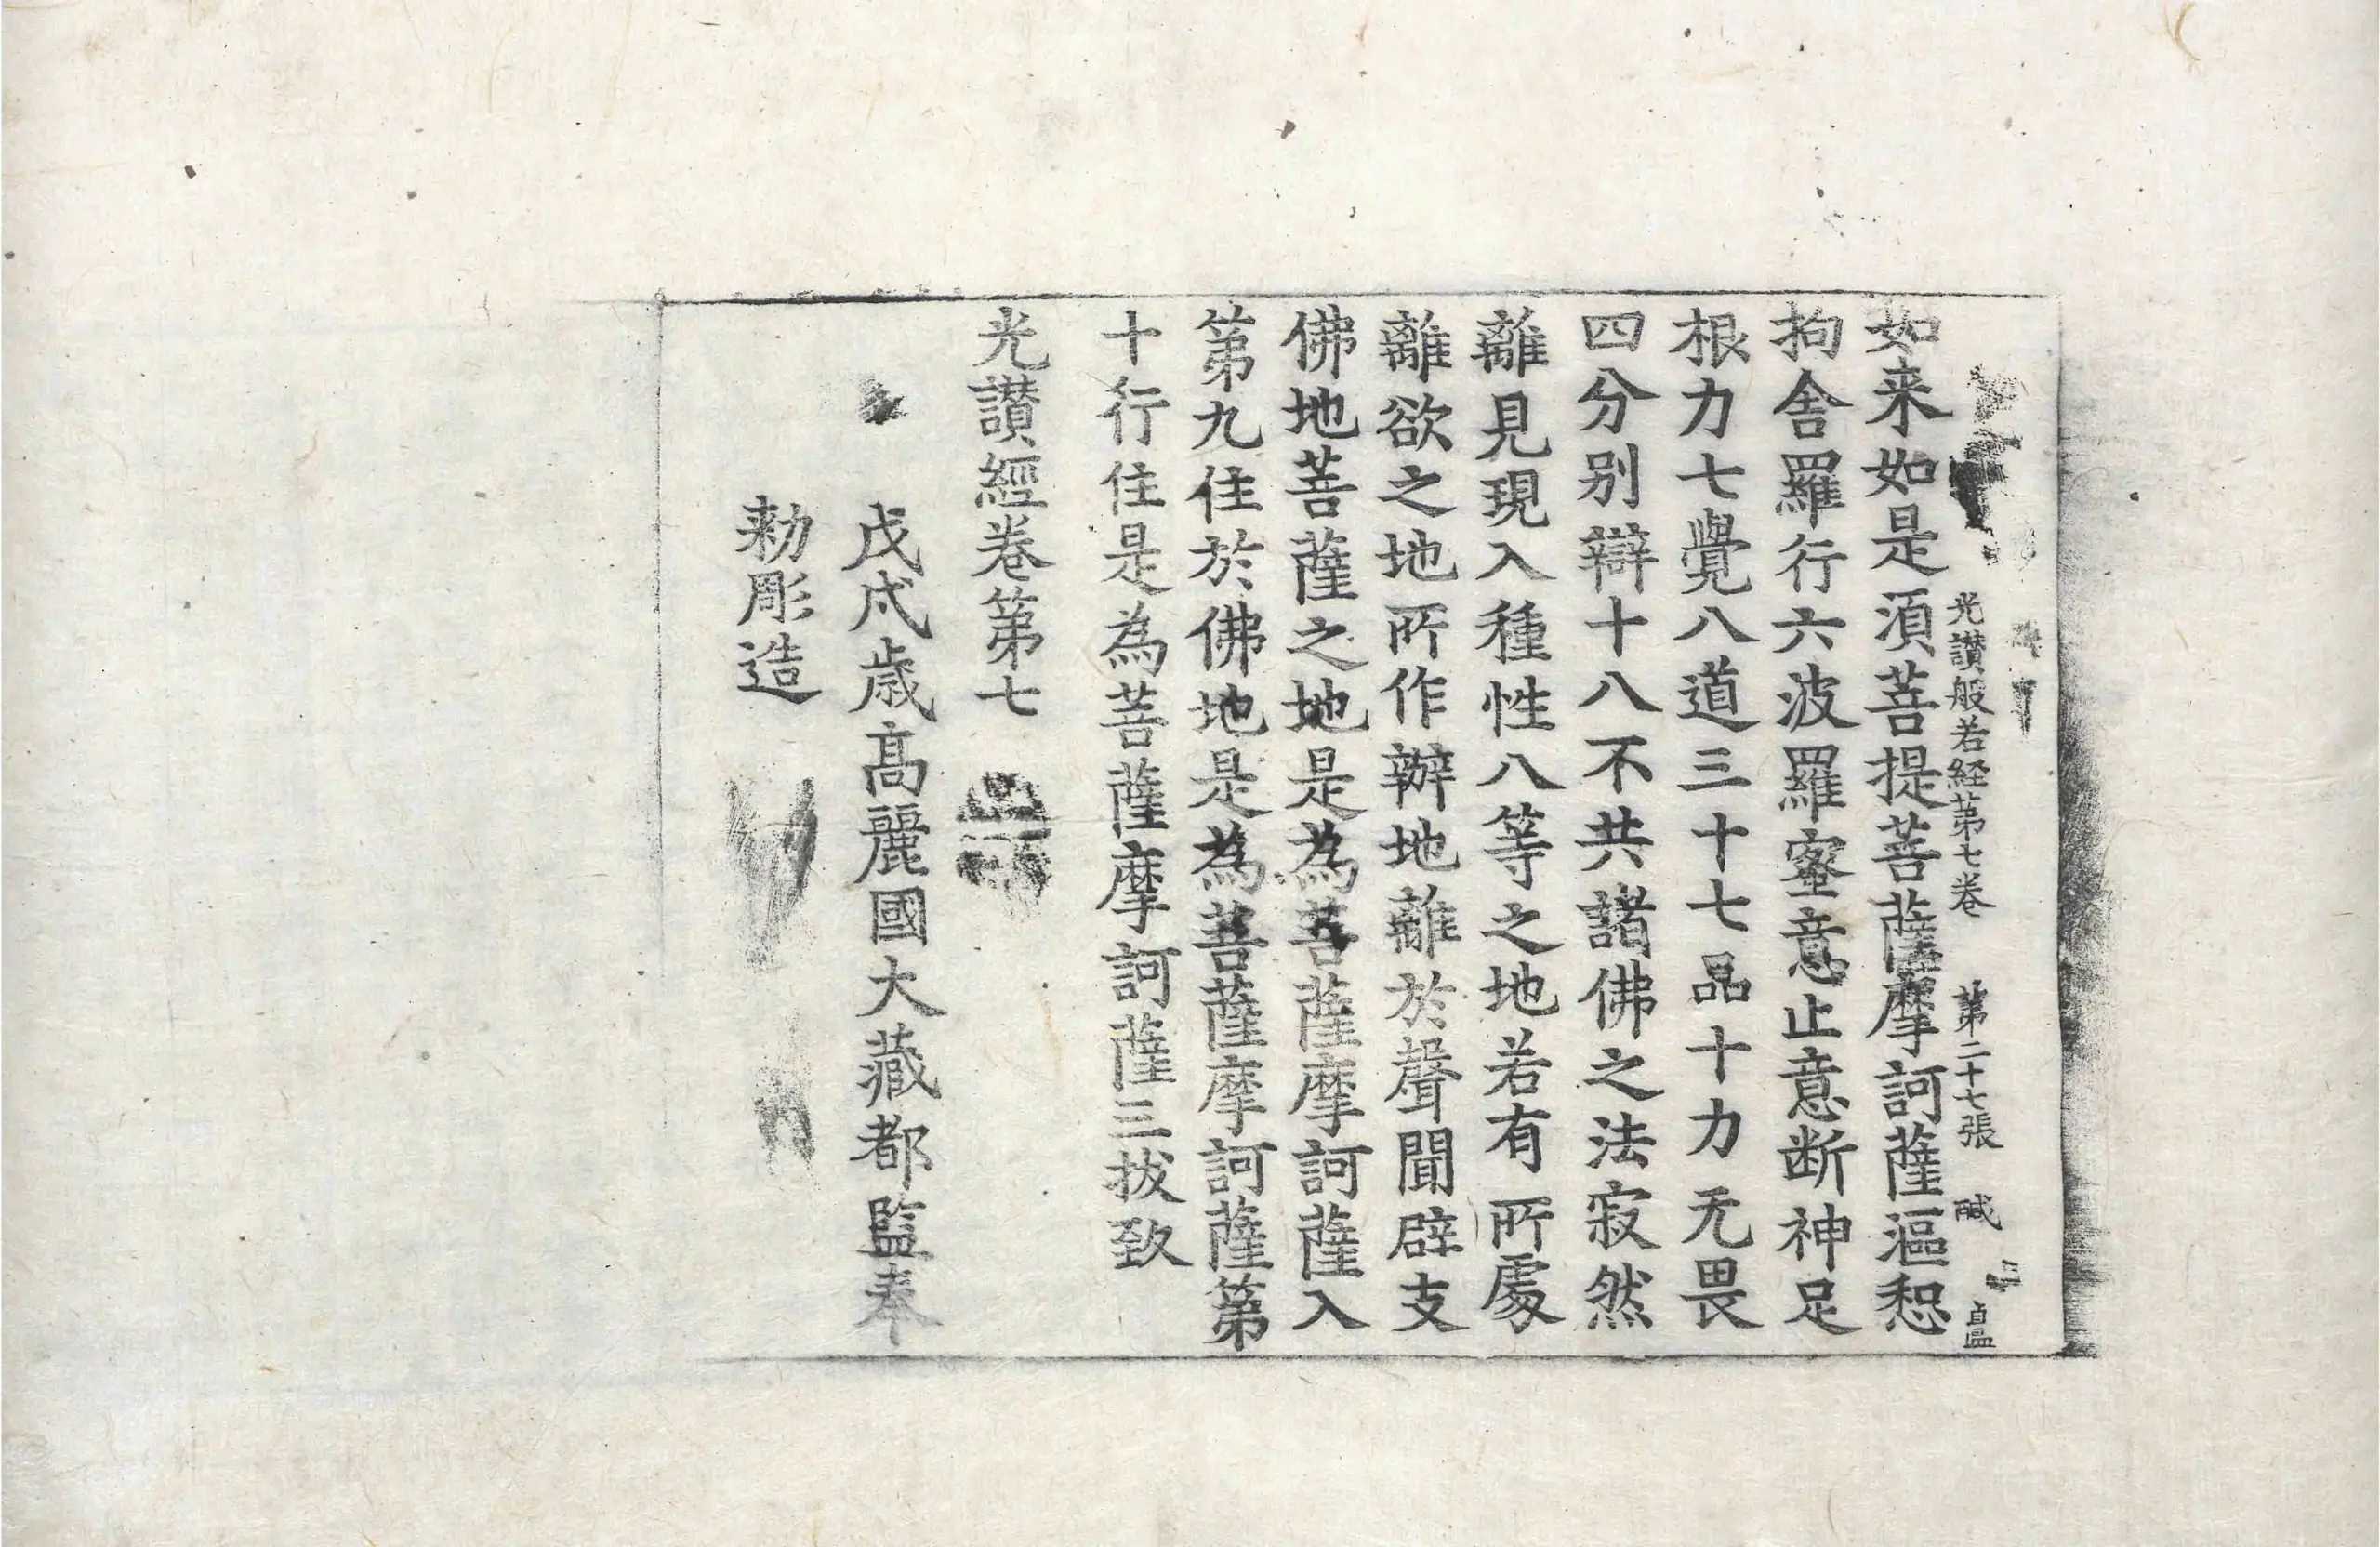 光讃般若経苐七卷 第二十七張 醎 貞區
如来如是湏菩提菩薩摩訶薩漚惒
拘舍羅行六波羅蜜意止意断神足
根力七覺八道三十七品十力无畏
四分别辯十八不共諸佛之法寂然
離見現入種性八等之地若有所處
離欲之地所作辦地離於聲聞辟支
佛地菩薩之地是為菩薩摩訶薩入
第九住於佛地是為菩薩摩訶薩第
十行住是為菩薩摩訶薩三拔致
光讃經卷第七
戊戌歳髙麗國大藏都監奉
勑彫造